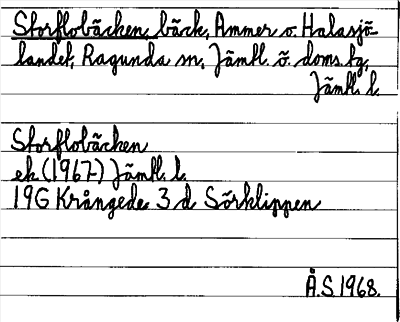 Storflobäcken, bäck, Ammer o. Halasjö-
landet, Ragunda sn, Jämtl. ö. doms. tg,
Jämtl. l.
Storflobäcken
ek (1967) Jämtl. l.
19G Krångede 3 d Sörklippen
Å.S 1968.